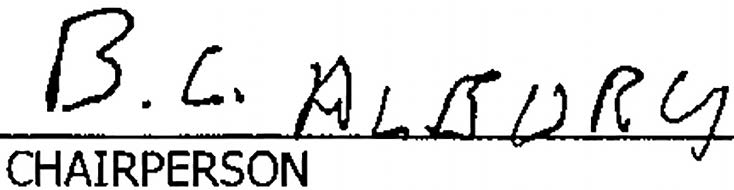 B. C. ALBURY
CHAIRPERSON